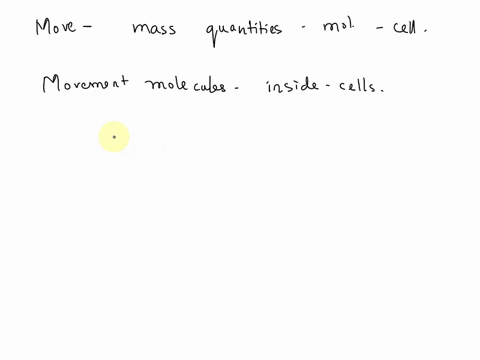 Move - mass quantities - mol. - cell.
Movement molecules - inside - cells.